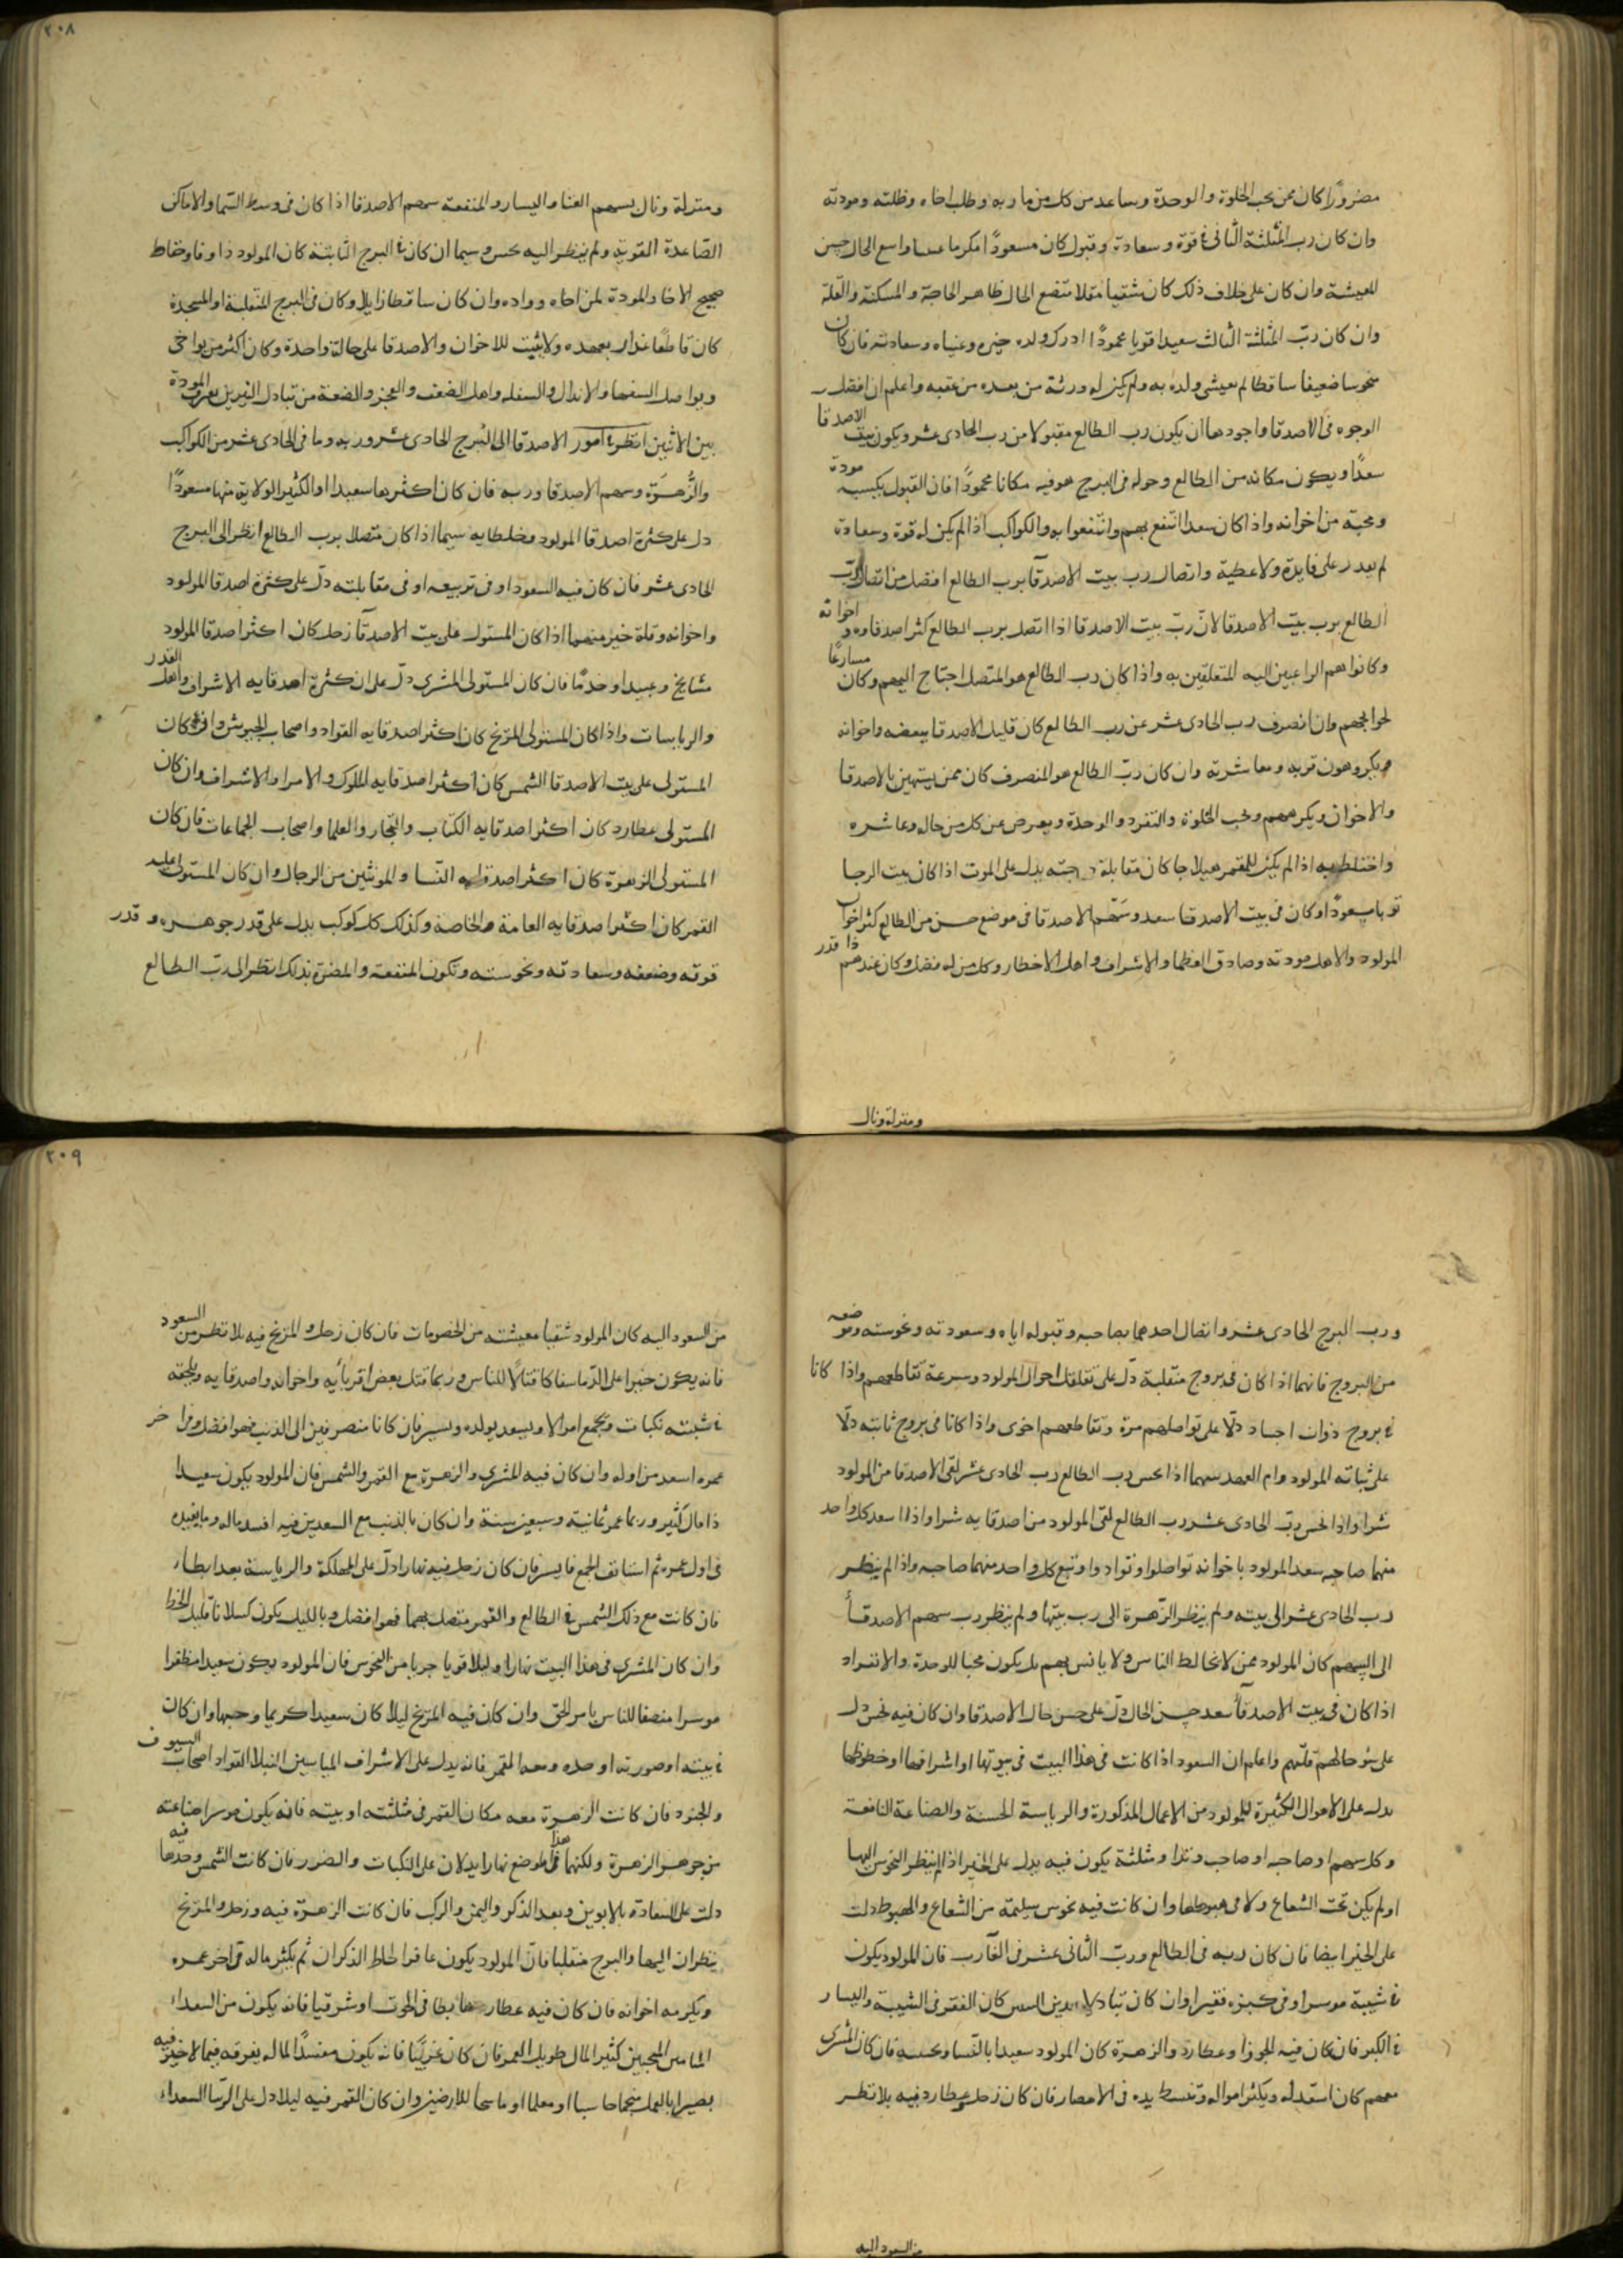 مضرورًا كان ممن يحب الخلوة والوحدة وساعد من كل من ماربه وطلب اخاه وخلته ومودته
وان كان رب المثلثة الثانى فى قوة وسعادة وقبول كان مسعودًا مكرما واسع الحال حسن
المعيشة وان كان على خلاف ذلك كان شقيا مقلا متضع الحال ظاهر الحاجة والمسكنة والقلة
وان كان ربّ المثلثة الثالث سعيدا قويا محمودًا ادرك ولده خيره وغناه وسعادته فان كان
منحوسا ضعيفا ساقطا لم يعيش ولده به ولم يكن له ورثة من بعده من عقبه واعلم ان افضل
الوجوه فى الاصدقا واجودها ان يكون رب الطالع مقبولا من رب الحادى عشر ويكون بيت الاصدقا
سعدًا ويكون مكانه من الطالع وحوله فى البرج هو فيه مكانا محمودًا فان القبول يكسبه مودة
ومحبة من اخوانه واذا كان سعدا انتفع بهم وانتفعوا به والكواكب اذا لم يكن له قوة وسعادة
لم يدر على فايدة ولا عطية واتصال رب بيت الاصدقآ برب الطالع افضل من اتصال ربّ
الطالع برب بيت الاصدقا لانّ ربّ بيت الاصدقا اذا اتصل برب الطالع كثر اصدقاوه واخوانه
وكانوا هم الراغبين اليه المتعلقين به واذا كان رب الطالع هو المتصل احتاج اليهم وكان مسارعًا
لحوايجهم وان انصرف رب الحادى عشر عن رب الطالع كان قليل الاصدقا يبغضه واخوانه
ويكروهون قربه ومعاشرته وان كان ربّ الطالع هو المنصرف كان ممن يستهين بالاصدقا
والاخوان ويكرههم ويحب الخلوة والتفرد والوحدة ويعرض عن كل من خاله وعاشره
واختلط به اذا لم يكن للقمر هيلاجا كان مقابلة درجته يدل على الموت اذا كان بيت الرجا
قويا مسعودًا وكان فى بيت الاصدقا سعد وسهم الاصدقا فى موضع حسن من الطالع كثر اخوان
المولود والاهل مودته وصادق العظما والاشراف واهل الاخطار وكل من له فضل وكان عندهم ذا قدر
ومنزلة ونال
ومنزلة ونال بسهم الغنا واليسار والمنفعة سهم الاصدقا اذا كان فى وسط السّما والاماكن
الصّاعدة القوية ولم ينظر اليه نحس وسيما ان كان فى البرج الثابتة كان المولود ذا وفا وحفاظ
صحيح الاخا والمودة لمن اخاه وواده وان كان ساقطا زايلا وكان فى البرج المتقلبة او المجسدة
كان قاطعًا غدار بعهده ولا يثبت للاخوان والاصدقا على حالة واحدة وكان اكثر من يواخى
ويواصل السفها والاندال والسفله واهل الضعف والعجز والضعة من تبادل النيرين يعرف المودة
بين الاثنين انظر فى امور الاصدقا الى البُرج الحادى عشر وربه وما فى الحادى عشر من الكواكب
والزُّهرَة وسهم الاصدقا وربه فان كان اكثرها سعيدا او الكثير الولاية منها مسعودًا
دل على كثرة اصدقا المولود وخلطايه سيما اذا كان متصلا برب الطالع انظر الى البرج
الحادى عشر فان كان فيه السعود او فى تربيعه او فى مقابلته دلّ على كثرة اصدقا المولود
واخوانه وقلة خير منهما اذا كان المستولى على بيت الاصدقآ زحل كان اكثر اصدقا المولود
مشايخ وعبيدا وخدمًا فان كان المستولى المشترى دلّ على ان كثرة اصدقايه الاشراف واهل القدر
والرياسات واذا كان المستولى المرّيخ كان اكثر اصدقايه القواد واصحاب الجيوش وان كان
المستولى على بيت الاصدقا الشمس كان اكثر اصدقايه الملوك والامرا والاشراف وان كان
المستولى عطارد كان اكثر اصدقايه الكتّاب والتجار والعلما واصحاب الجماعات فان كان
المستولى الزهرة كان اكثر اصدقايه النسا والمونثين من الرجال وان كان المستولى عليه
القمر كان اكثر اصدقايه العامة والخاصة وكذلك كل كوكب يدل على قدر جوهره وقدر
قوته وضعفه وسعادته ونحوسته وتكون المنفعة والمضرة بذلك انظر الى ربّ الطالع
٢٠٨
ورب البرج الحادى عشر واتصال احدهما بصاحبه وقبوله اياه وسعودته ونحوسته وموضعه
من البروج فانهما اذا كان فى بروج متقلبة دلّ على تقلقل احوال المولود وسرعة تقاطعهم واذا كانا
فى بروج ذوات اجساد دلّا على تواصلهم مرّة وتقاطعهم اخرى واذا كانا فى بروج ثابته دلّا
على ثباته المولود وام العهد سهما اذا نحس رب الطالع رب الحادى عشر لقى الاصدقا من المولود
شرا واذا نحس ربّ الحادى عشر رب الطالع لقى المولود من اصدقايه شرا واذا اسعد كل واحد
منهما صاحبه سعد المولود باخوانه تواصلوا وتوادوا ونفع كل واحد منهما صاحبه واذا لم ينظر
رب الحادى عشر الى بيته ولم ينظر الزّهرة الى رب بيتها ولم ينظر رب سهم الاصدقآ
الى السهم كان المولود ممن لا يخالط الناس ولا يانس بهم بل يكون محبا للوحدة والانفراد
اذا كان فى بيت الاصدقآ سعد حسن الحال دلّ على حسن حال الاصدقا وان كان فيه نحس دل
على سو حالهم قلّتهم واعلم ان السعود اذا كانت فى هذا البيت فى بيوتها او اشرافها او حظوظها
يدل على الاموال الكثيرة للمولود من الاعمال المذكورة والرياسة الحسنة والصناعة النافعة
وكل سهم او صاحبه او صاحب وتد او مثلثة يكون فيه يدل على الخير اذا لم ينظر النحوس اليها
او لم يكن تحت الشعاع ولا فى هبوطها وان كانت فيه نحوس سليمة من الشعاع والهبوط دلت
على الخير ايضا فان كان ربه فى الطالع وربّ الثانى عشر فى الغآرب فان المولود يكون
فى شبيبة موسرا وفى كبره فقيرا وان كان تبادلا كان الفقر فى الشبيبة واليسار
فى الكبر فان كان فيه الجوزا وعطارد والزهرة كان المولود سعيدا بالنّسا فان كان المشترى
معهم كان اسعد له ويكثر امواله وتنبسط يده فى الامصار فان كان زحل وعطارد فيه بلا نظر
من السعود اليه
من السعود اليه كان المولود شقيا معيشته من الخصومات فان كان زحل والمرّيخ فيه بلا نظر من السعود
فانه يكون خبرا على الدّما سفاكا قتالًا للناس وربما قتل بعض اقربآيه واخوانه واصدقايه ويلحقه
فى شبيته نكبات ويجمع اموالا ويسعد بولده وسير فان كانا منصرفين الى الذنب فهو افضل واخر
عمره اسعد من اوله وان كان فيه المشترى والزهرة مع القمر والشمس فان المولود يكون سعيدا
ذا مال كثير وربما عمر ثمانية وسبعين سنة وان كان بالذنب مع السعدين فيه افسد ماله وما يفيده
فى اول عمره ثم استانف الجمع فايسر فان كان زحل فيه نهارا دلّ على المملكة والرياسة بعد ابطا
فان كانت مع ذلك الشمس فى الطالع والقمر متصل بهما فهو افضل وبالليل يكون كسلانا قليل الحظ
وان كان المشترى فى هذا البيت نهارا وليلا قويا جريا من النحوس فان المولود يكون سعيدا مظفرا
موسرا منصفا للناس يامر الحق وان كان فيه المرّيخ ليلا كان سعيدا كريما وجيها وان كان
فى بيته او صورته او حده ومعه القمر فانه يدل على الاشراف المياسير النبلا القواد اصحاب السيوف
والجنود فان كانت الزهرة معه مكان القمر فى مثلثته او بيته فانه يكون موسرا صناعته
من جوهر الزهرة ولكنهما فى هذا الموضع نهارا يدلان على النكبات والضرر فان كانت الشمس وحدها فيه
دلت على السعادة بالابوين وبعد الذكر واليمن والركب فان كانت الزهرة فيه وزحل والمرّيخ
ينظران اليها والبرج منقلبا فان المولود يكون عاقرا لخلط الذكران ثم يكثر ماله فى اخر عمره
ويكرمه اخوانه فان كان فيه عطارد هابطا فى الحوت او شرقيا فانه يكون من السعداء
الميامين المحبين كثير المال طويل العمر فان كان غربيًا فانه يكون مفسدًا لماله يفرقه فيما لا خير فيه
بصيرا بالعمل منجما حاسبا او معلما او ماسحا للارضين وان كان القمر فيه ليلا دل على الرّسا السعداء
٢٠٩